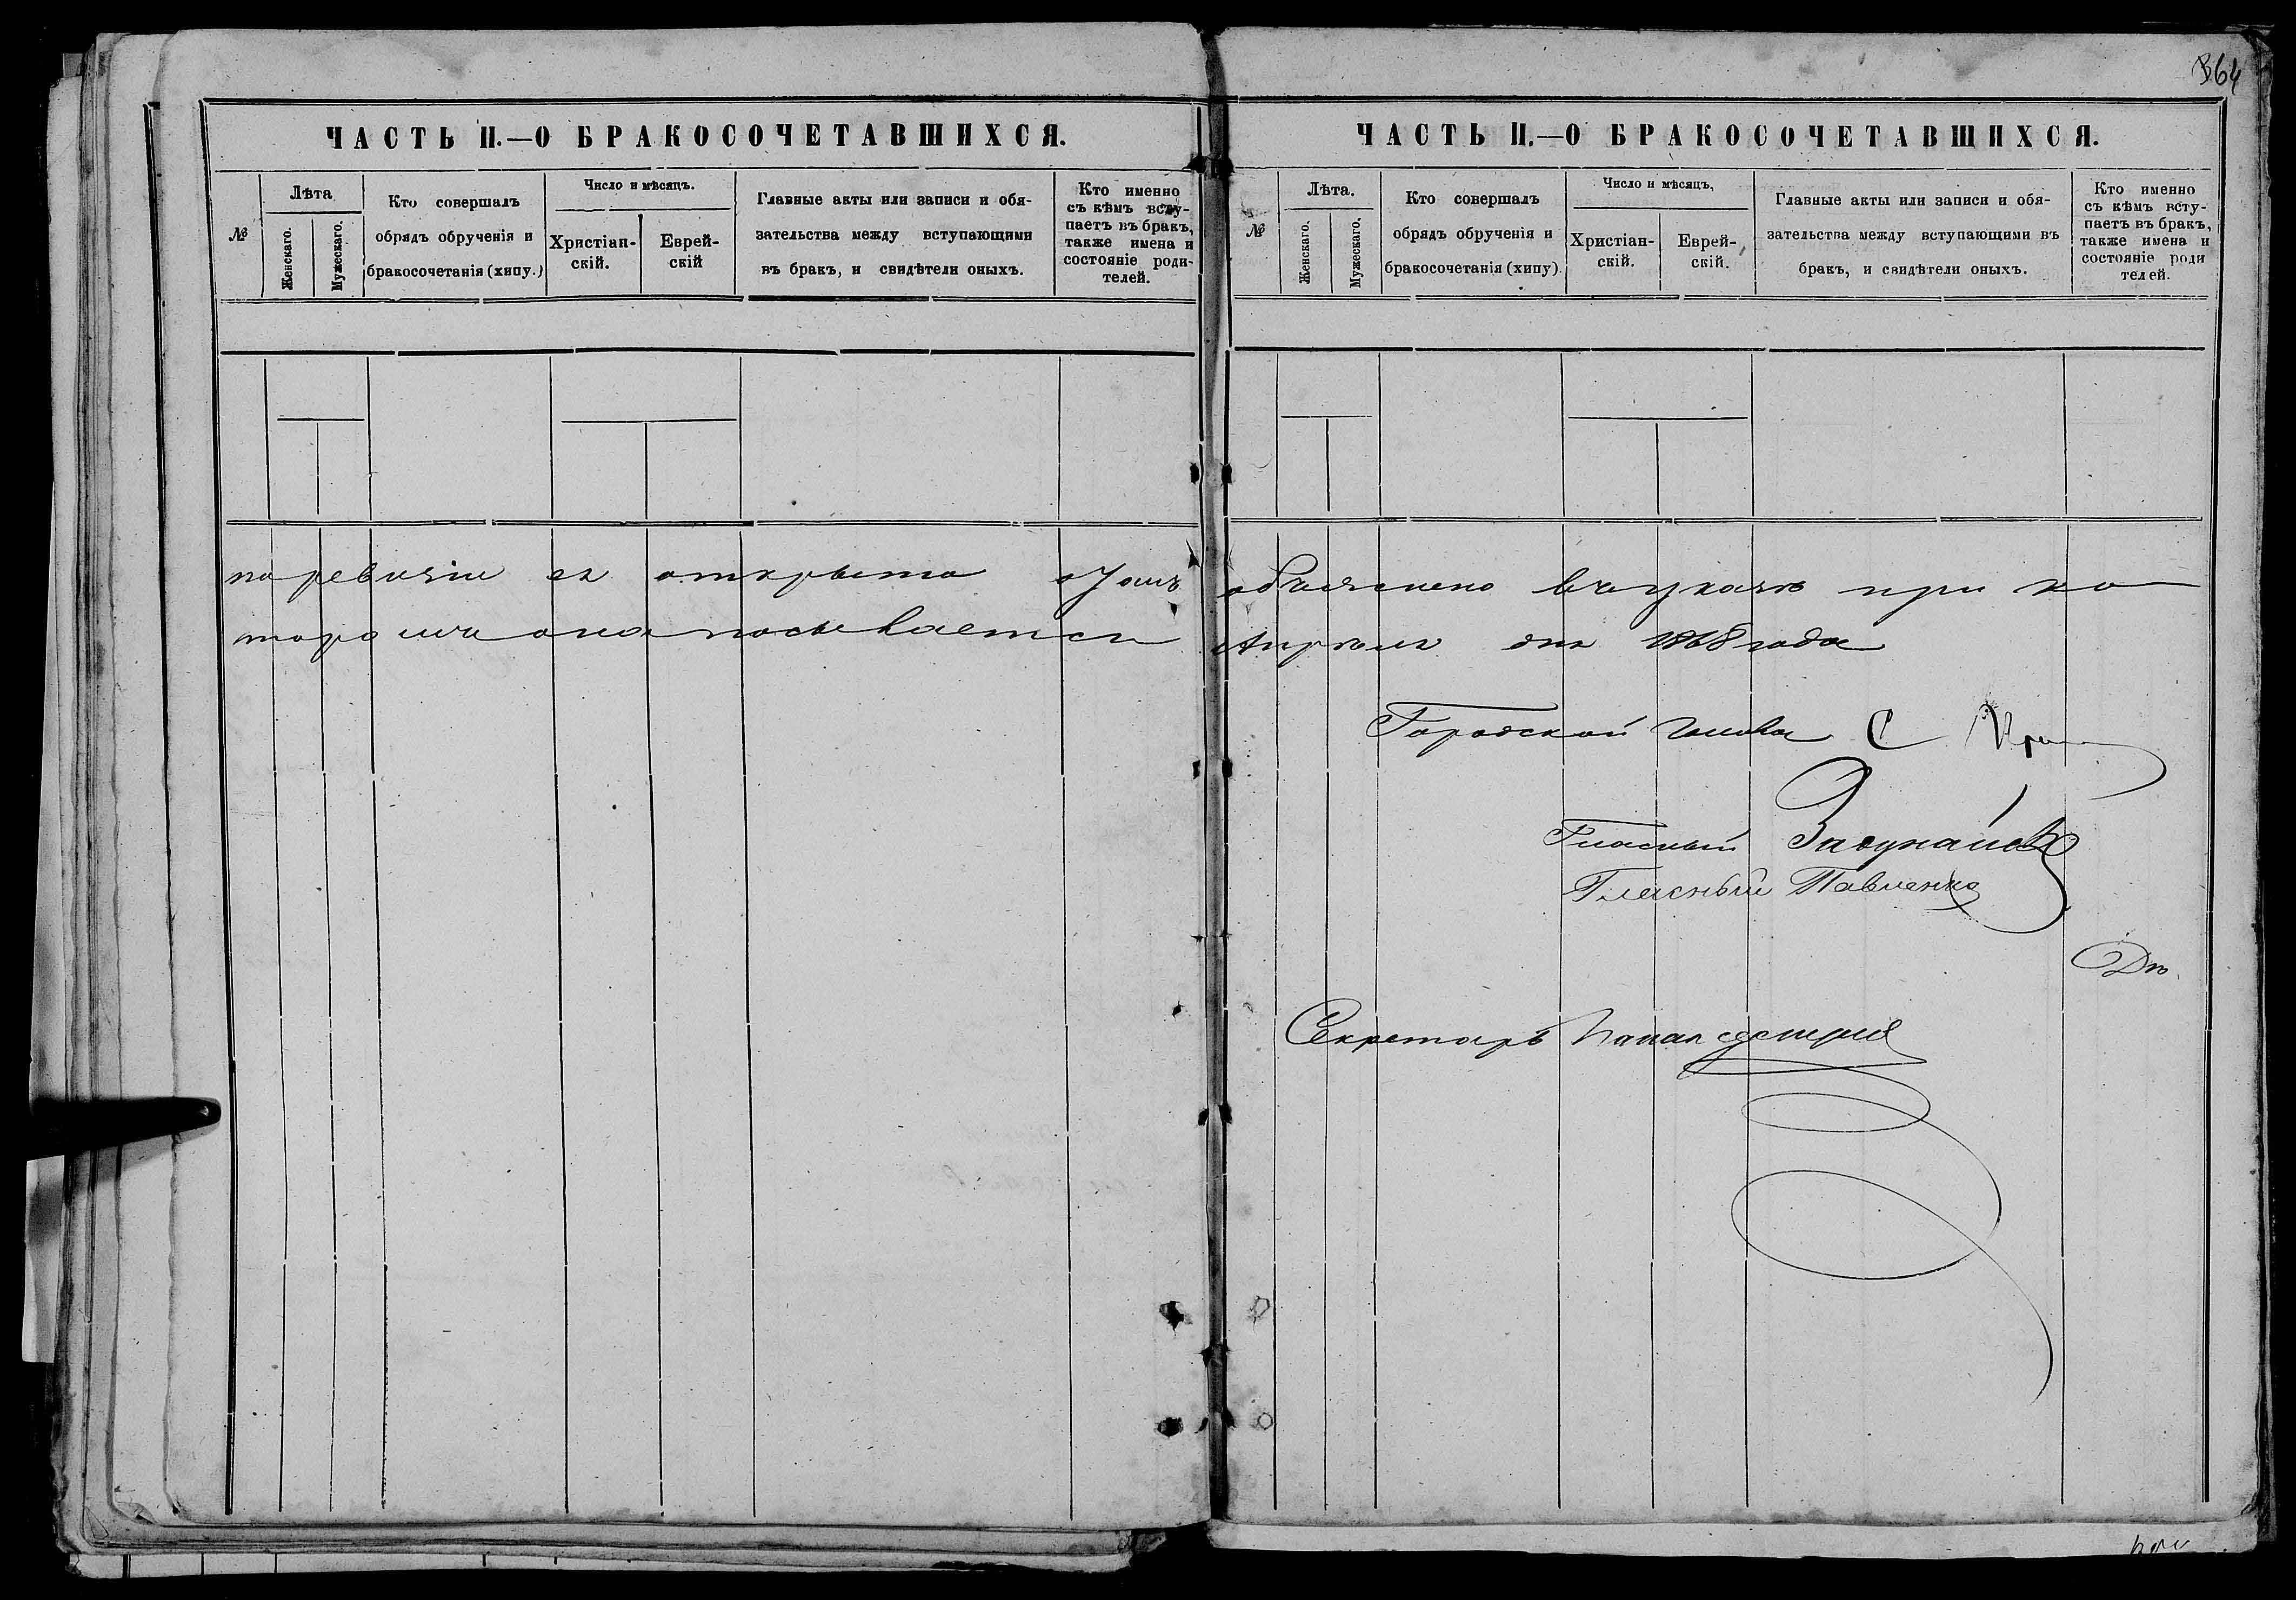 364
ЧАСТЬ II.—О БРАКОСОЧЕТАВШИХСЯ.
№
Лѣта
Женскаго.
Мужескаго.
Кто совершалъ
обрядъ обрученія и
бракосочетанія (хипу.)
Число и мѣсяцъ.
Христіан-
скій.
Еврей-
скій
Главные акты или записи и обя-
зательства между вступающими
въ бракъ, и свидѣтели оныхъ.
Кто именно
съ кѣмъ всту-
паетъ въ бракъ,
также имена и
состояніе роди-
телей.
по ревизіи ея открыто о чемъ
торомъ она посылается
ЧАСТЬ II.—О БРАКОСОЧЕТАВШИХСЯ.
№
Лѣта.
Женскаго.
Мужескаго.
Кто совершалъ
обрядъ обрученія и
бракосочетанія (хипу).
Число и мѣсяцъ,
Христіан-
скій.
Еврей-
скій.
Главные акты или записи и обя-
зательства между вступающими въ
бракъ, и свидѣтели оныхъ.
Кто именно
съ кѣмъ всту-
паетъ въ бракъ,
также имена и
состояніе роди
телей.
объяснено въ указѣ при ко
Апрѣля дня 1868 года
Городской Голова С
Гласный
Гласный Павленко
Секретарь